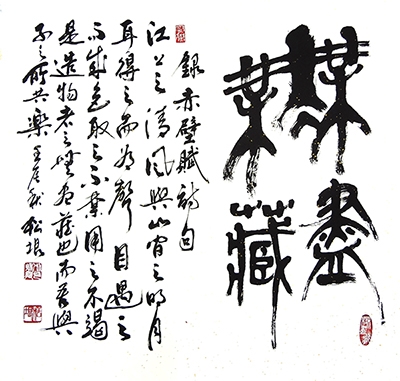 無盡藏
錄赤壁賦詩句
江上之清風與山間之明月
耳得之而為聲目遇之
而成色取之不禁用之不竭
是造物者之無盡藏也而吾與
子之所共樂 壬辰秋 松垠